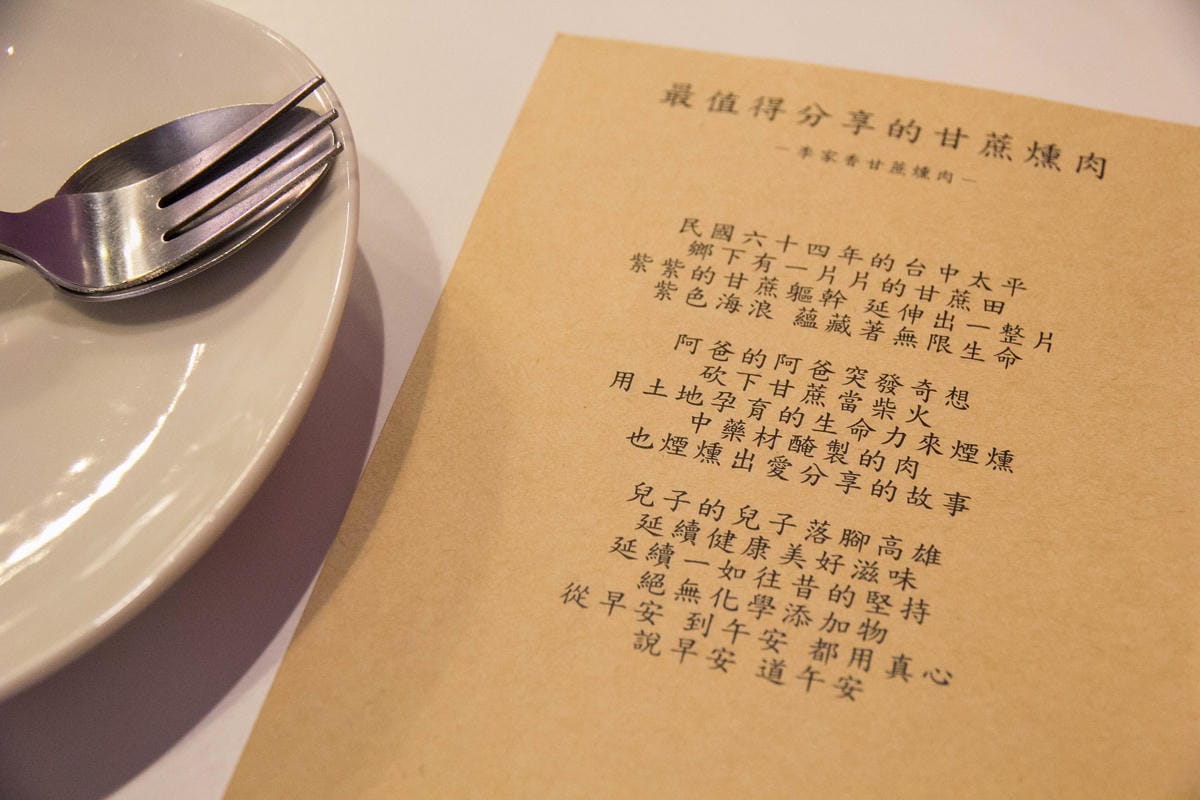 最值得分享的甘蔗燻肉
－李家香甘蔗燻肉－
民國六十四年的台中太平
鄉下有一片片的甘蔗田
紫紫的甘蔗軀幹 延伸出一整片
紫色海浪 蘊藏著無限生命
阿爸的阿爸突發奇想
砍下甘蔗當柴火
用土地孕育的生命力來煙燻
中藥材醃製的肉
也煙燻出愛分享的故事
兒子的兒子落腳高雄
延續健康美好滋味
延續一如往昔的堅持
絕無化學添加物
從早安 到午安 都用真心
說早安 道午安